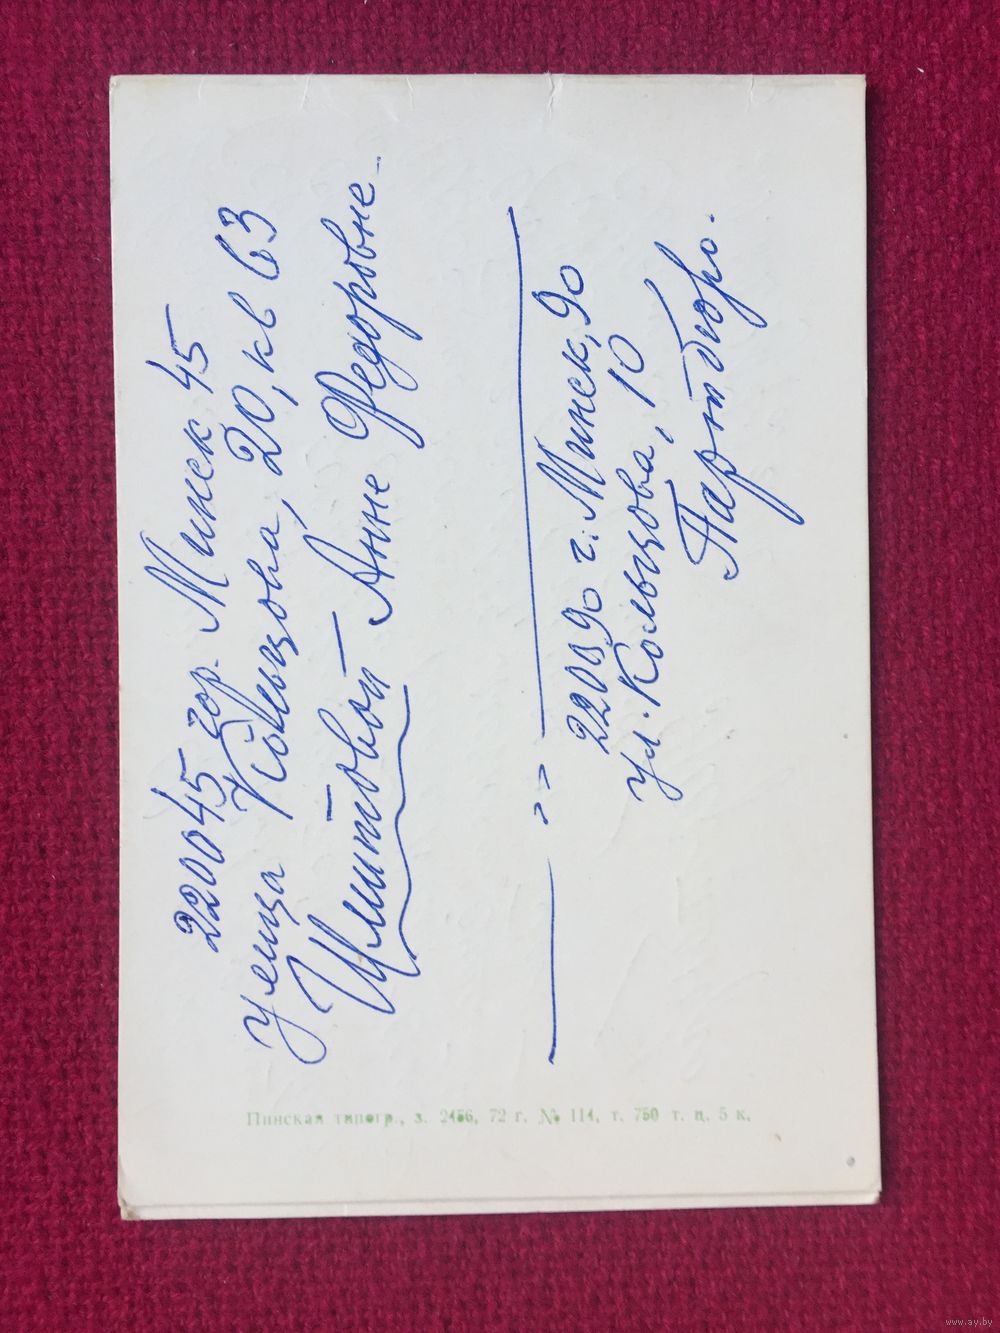 220045 гор. Минск 45
улица Кольцова, 20, кв 63
Шлыптовой Анне Федоровне
— " —
220090 г. Минск, 90
ул. Кольцова, 10
Партбюро.
Пинская типогр., з. 2456, 72 г. № 114, т. 750 т. ц. 5 к.
www.ay.by